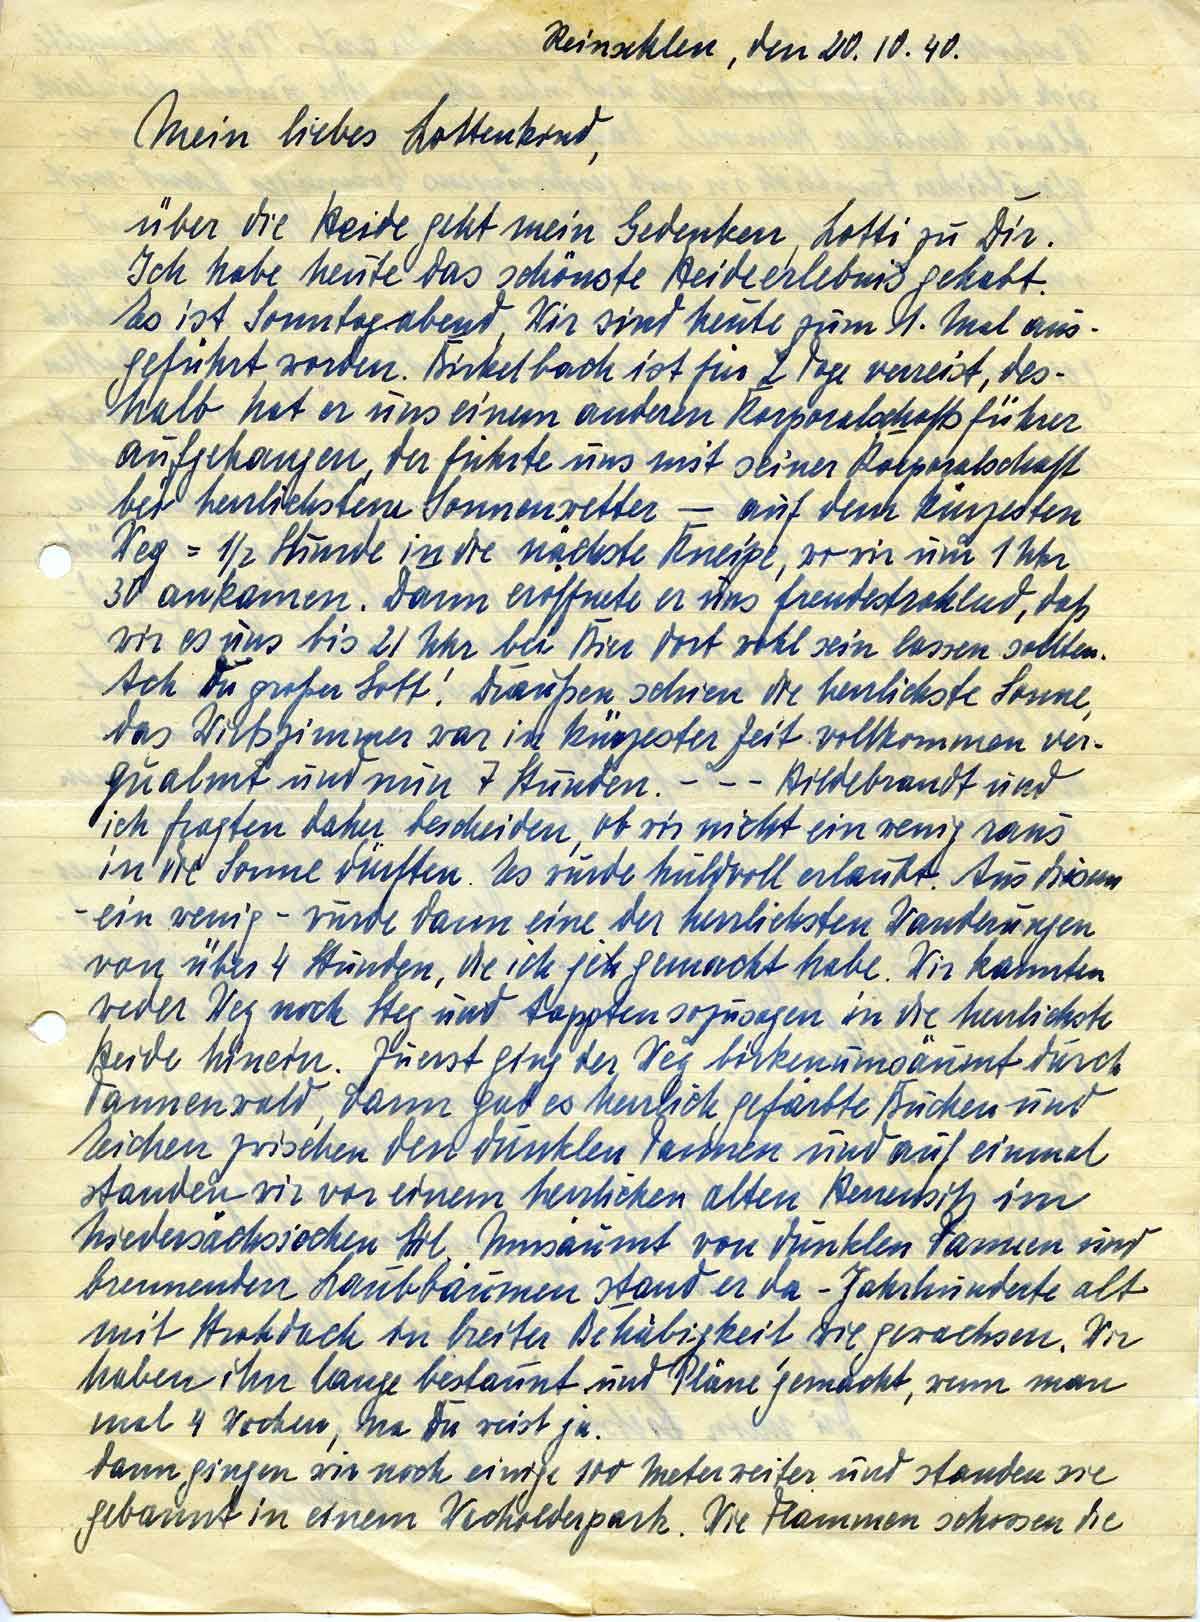 Reinsehlen, den 20.10.40.
Mein liebes Lottenkind,
über die Heide geht mein Gedenken, Lotti zu Dir.
Ich habe heute das schönste Heideerlebnis gehabt.
Es ist Sonntagabend, Wir sind heute zum 1. Mal aus-
geführt worden. Birkelbach ist für 2 Tage verreist, des-
halb hat er uns einem anderen Korporalschaftsführer
aufgehangen, der führte uns mit seiner Korporalschaft
bei herrlichstem Sonnenwetter — auf dem kürzesten
Weg = 1/2 Stunde in die nächste Kneipe, wo wir um 1 Uhr
30 ankamen. Dann eröffnete er uns freudestrahlend, daß
wir es uns bis 21 Uhr bei Bier dort wohl sein lassen sollten.
Ach Du großer Gott! Draußen schien die herrlichste Sonne,
das Wirtszimmer war in kürzester Zeit vollkommen ver-
qualmt und nun 7 Stunden. - - - Hildebrandt und
ich fragten daher bescheiden, ob wir nicht ein wenig raus
in die Sonne dürften. Es wurde huldvoll erlaubt. Aus diesem
- ein wenig - wurde dann eine der herrlichsten Wanderungen
von über 4 Stunden, die ich jeh gemacht habe. Wir kannten
weder Weg noch Steg und tappten sozusagen in die herrlichste
Heide hinein. Zuerst ging der Weg birkenumsäumt durch
Tannenwald, dann gab es herrlich gefärbte Buchen und
Eichen zwischen den dunklen Tannen und auf einmal
standen wir vor einem herrlichen alten Herrensitz im
Niedersächsischen Stil. Umsäumt von dunklen Tannen und
brennenden Laubbäumen stand er da - Jahrhunderte alt
mit Strohdach in breiter Behäbigkeit wie gewachsen. Wir
haben ihn lange bestaunt und Pläne gemacht, wenn man
mal 4 Wochen, na Du weist ja.
Dann gingen wir noch einige 100 Meter weiter und standen wie
gebannt in einem Wacholderpark. Wie Flammen schossen die